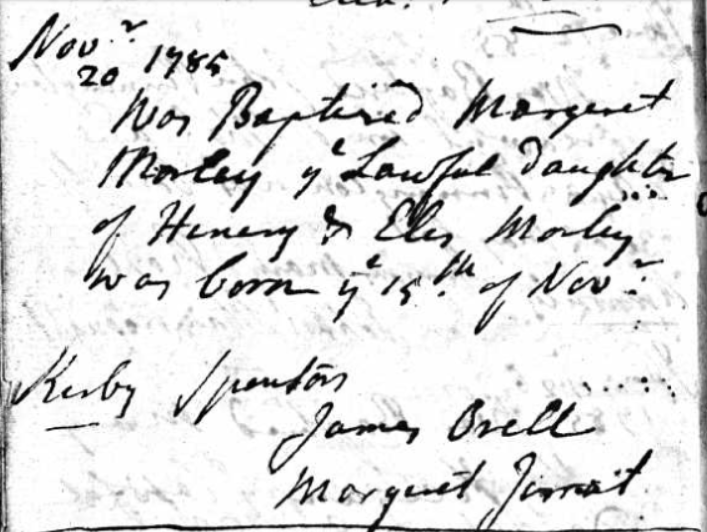 Nov.r
20 1785
was Baptized Margeret
Morley ye Lawful Daughter
of Henery & Eles Morley
was born ye 15.th of Nov.r
Kerby Sponsors
James Orell
Margeret